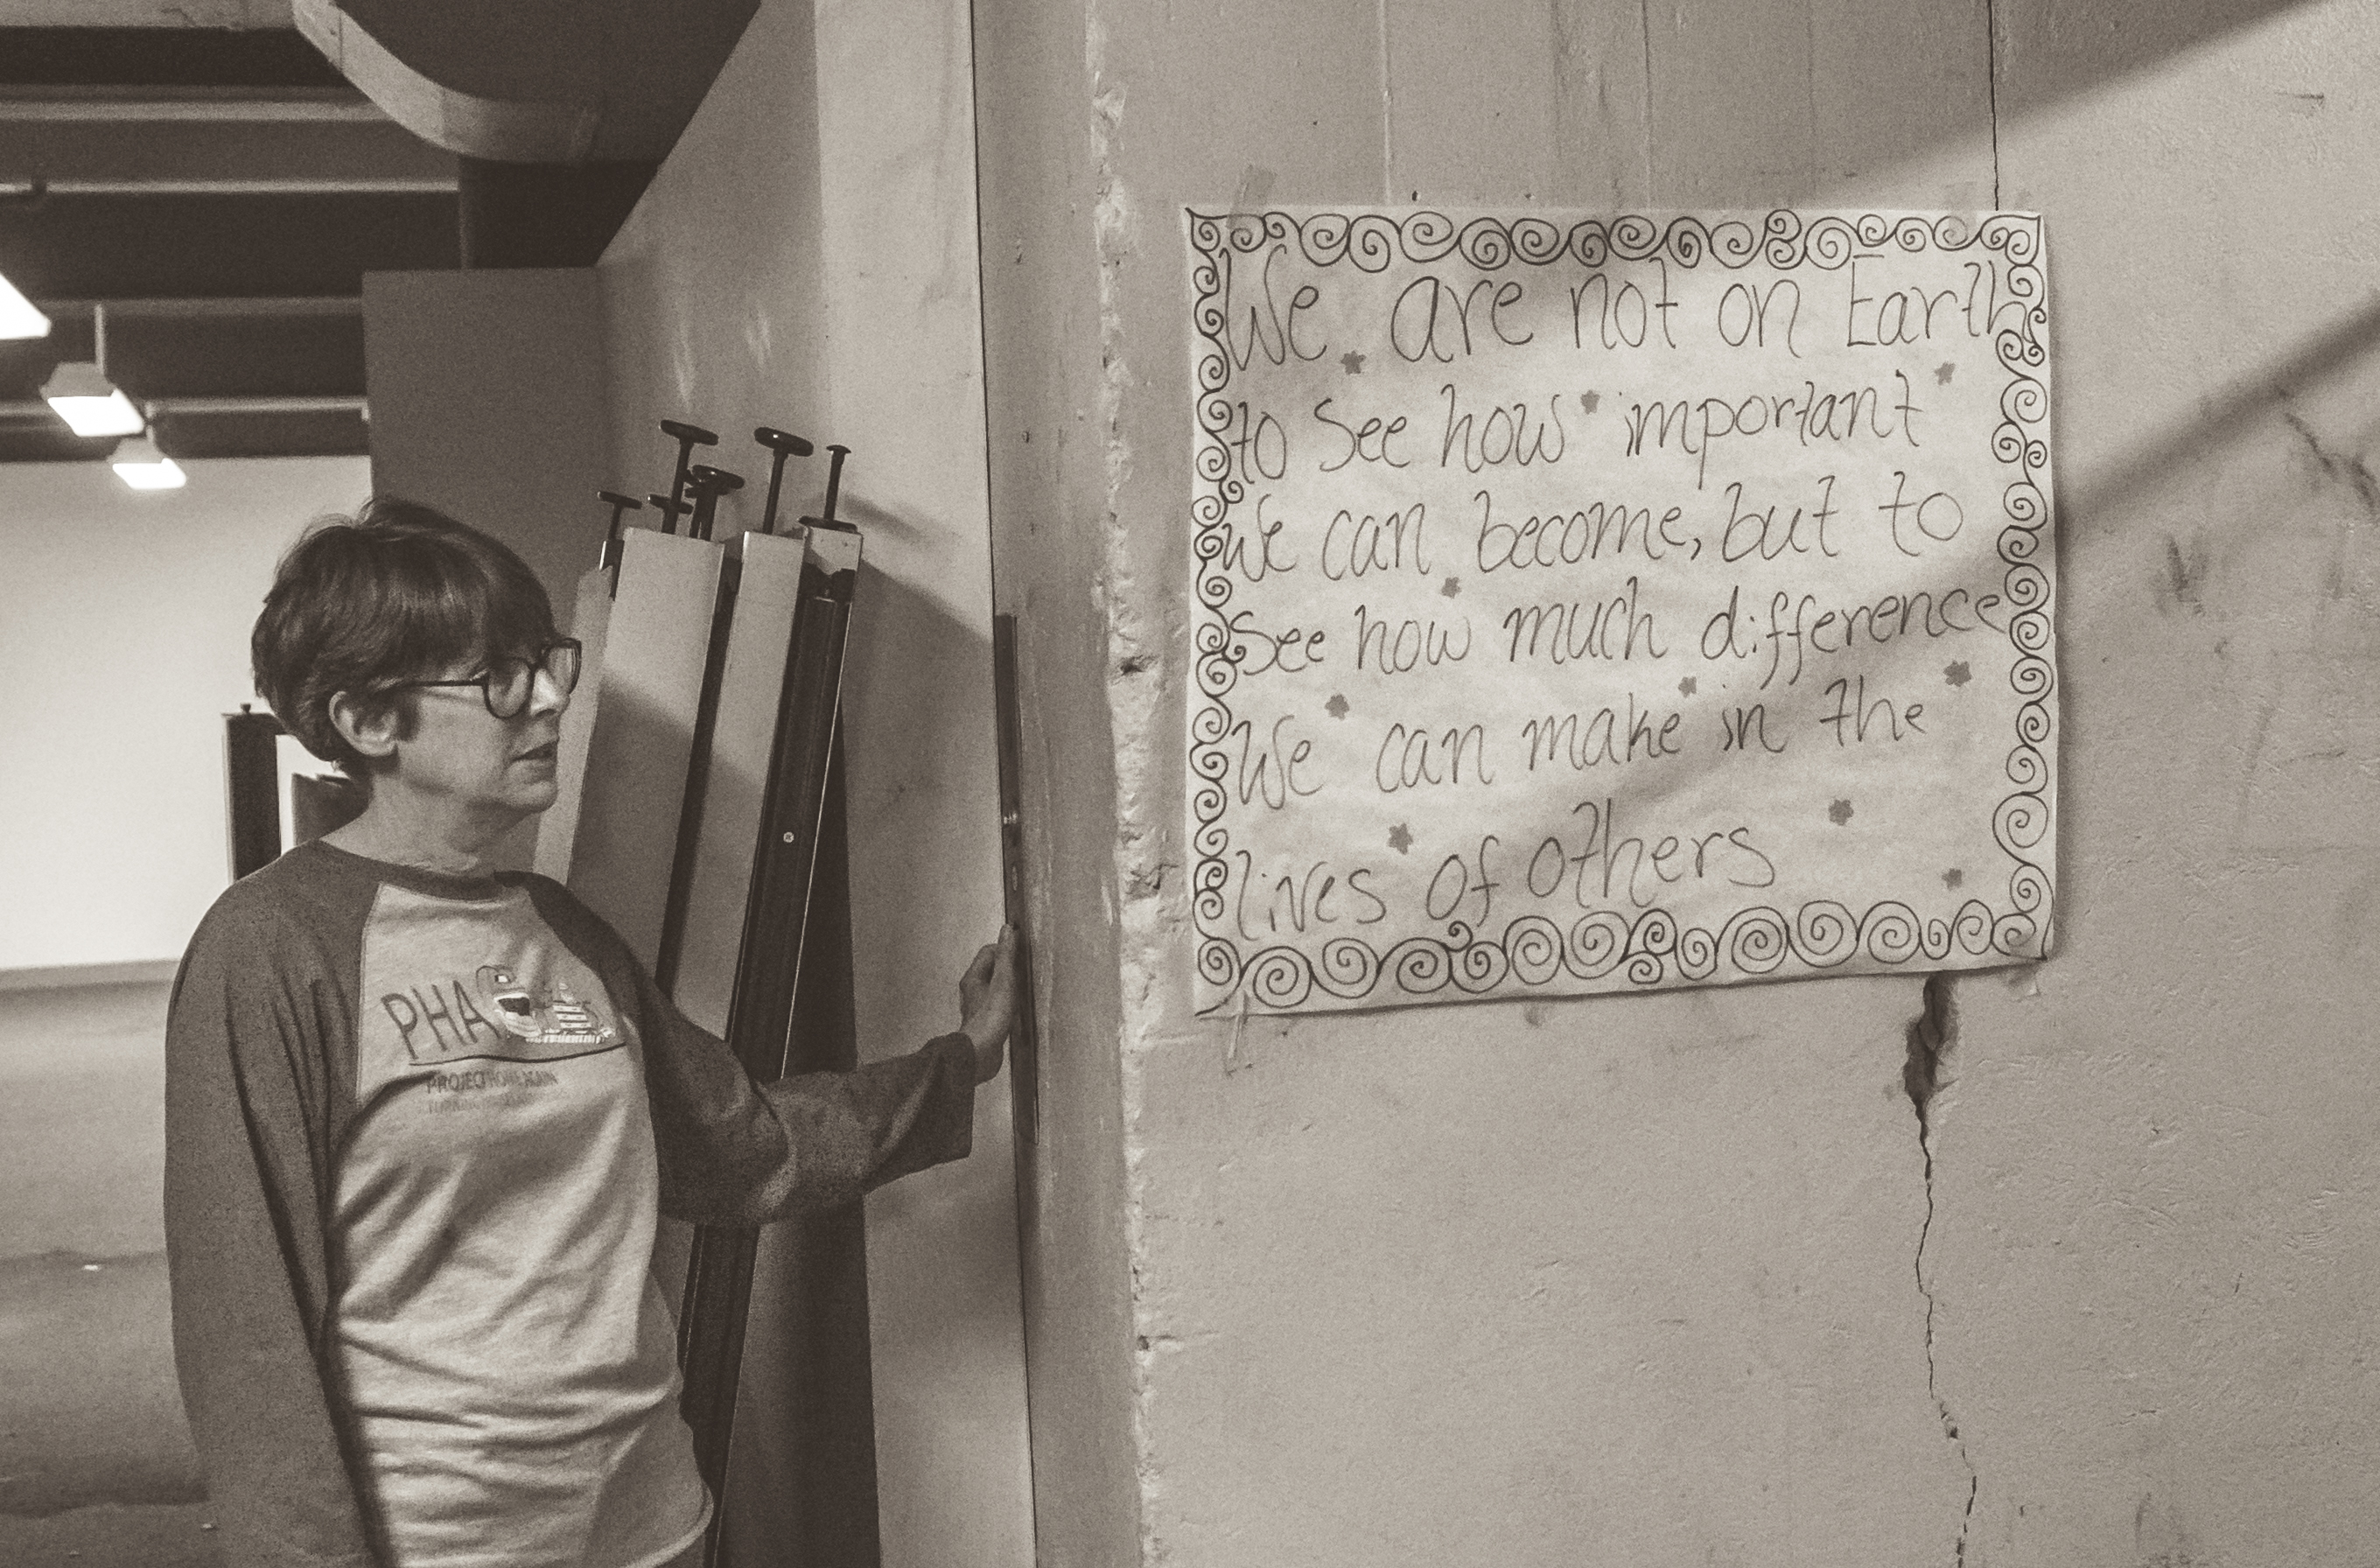 We are not on Earth
to see how important
we can become, but to
see how much difference
We can make in the
lives of others
PHA
PROJECT HOME AGAIN